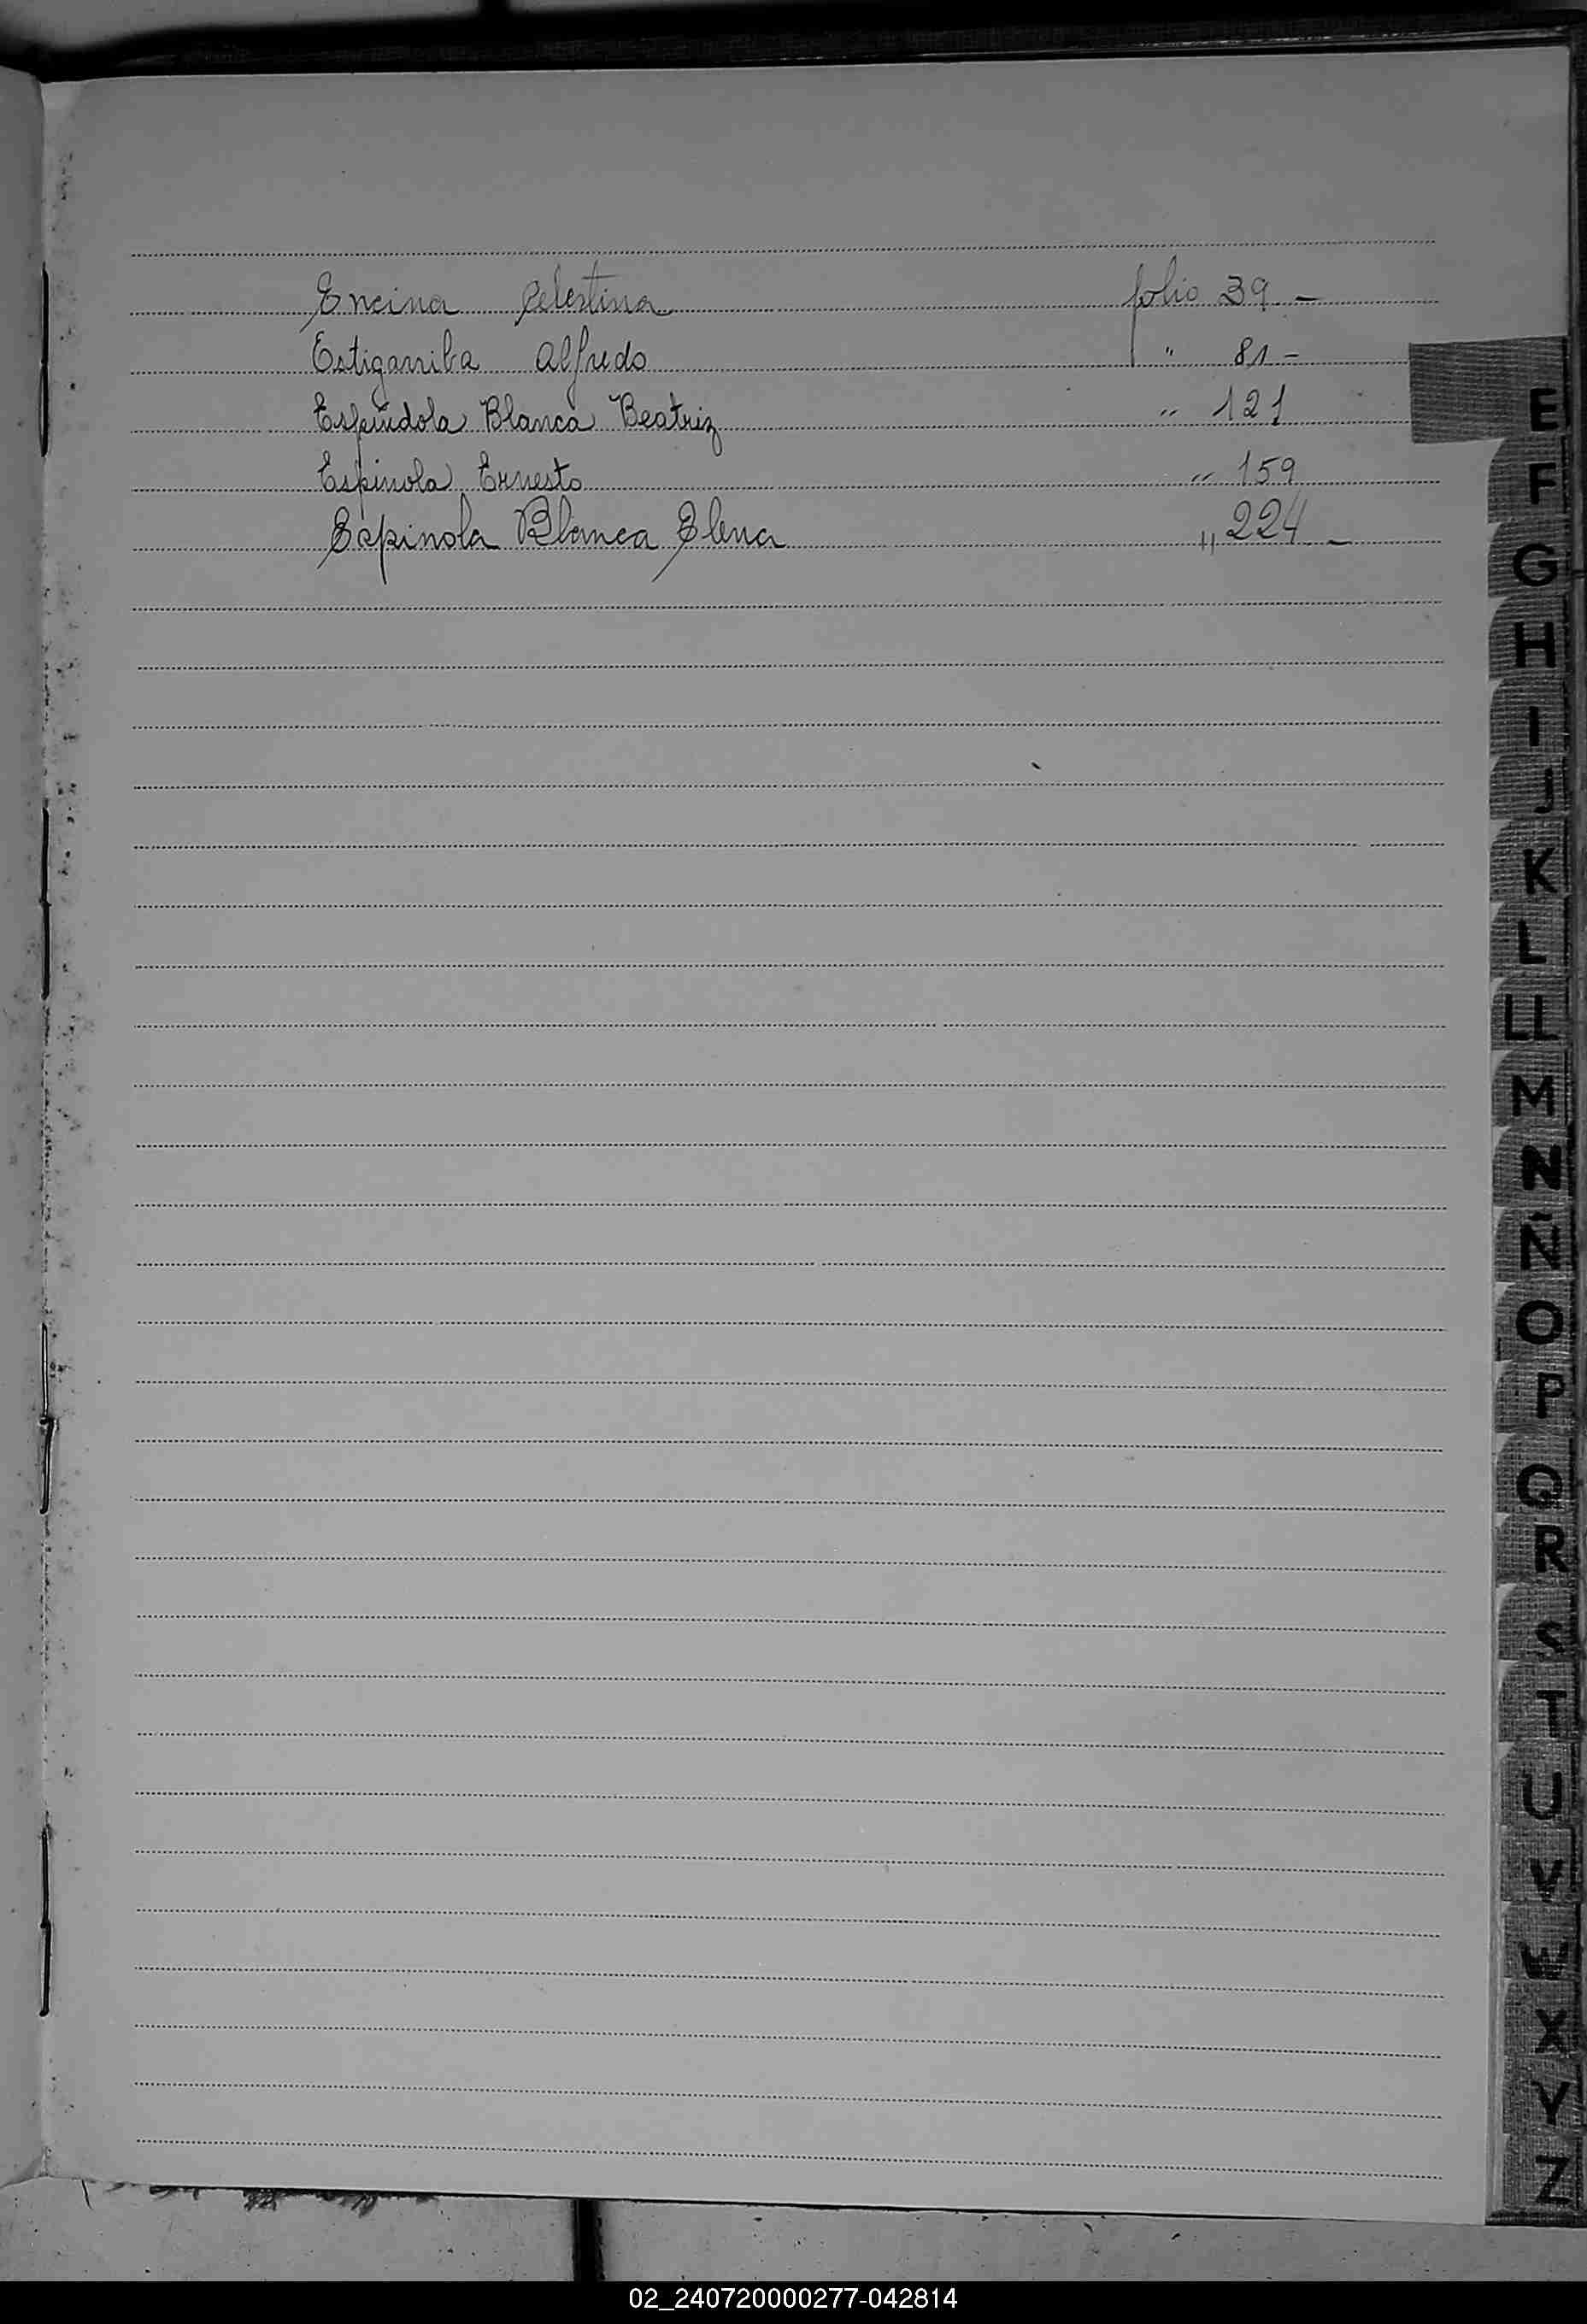 Encina Celestina folio 39 -
Estigarriba Alfredo " 81 -
Espíndola Blanca Beatriz " 121
Espinola Ernesto " 159
Espinola Blanca Elena " 224 -
E
F
G
H
I
J
K
L
LL
M
N
Ñ
O
P
Q
R
S
T
U
V
W
X
Y
Z
02_240720000277-042814